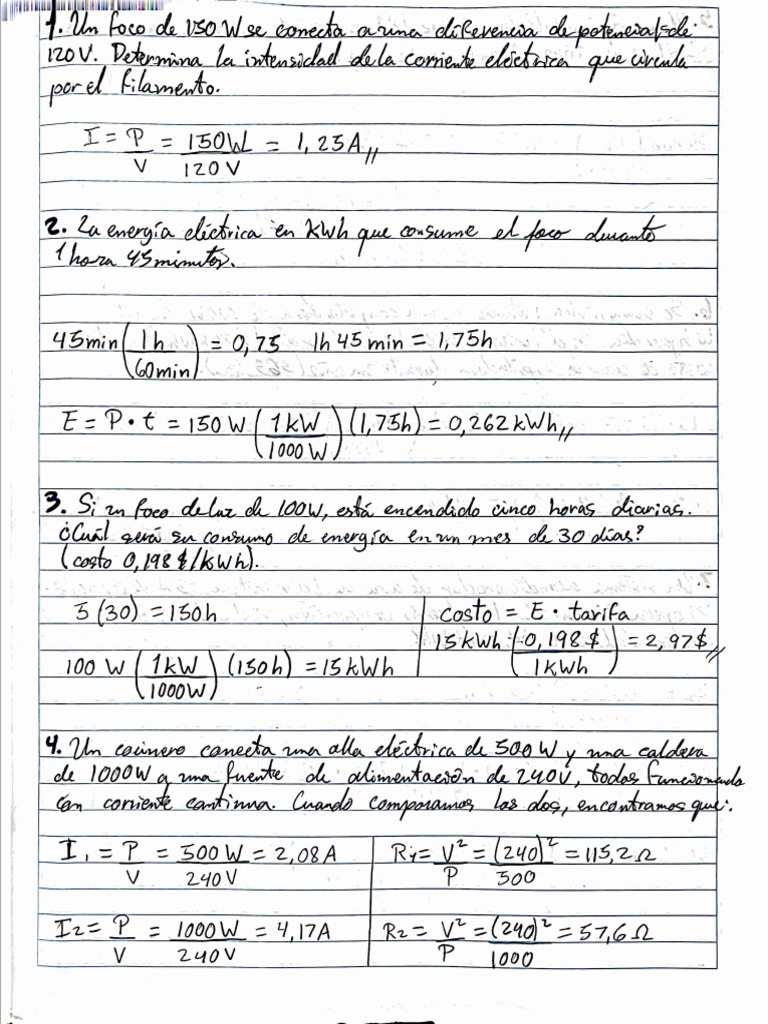 1. Un foco de 150 W se conecta a una diferencia de potencial de
120V. Determina la intensidad de la corriente eléctrica que circula
por el filamento.
I = P/V = 150W/120V = 1,25A //
2. La energía eléctrica en kWh que consume el foco durante
1 hora 45 minutos.
45min (1h/60min) = 0,75   1h 45 min = 1,75h
E = P • t = 150 W (1kW/1000W) (1,75h) = 0,262 kWh //
3. Si un foco de luz de 100W, está encendido cinco horas diarias.
¿Cuál será su consumo de energía en un mes de 30 días?
(costo 0,198 $/kWh).
5 (30) = 150h
costo = E • tarifa
15 kWh • (0,198 $/1kWh) = 2,97 $ //
100 W (1kW/1000W) (150h) = 15 kWh
4. Un cocinero conecta una olla eléctrica de 500 W y una caldera
de 1000W a una fuente de alimentación de 240V, todos funcionando
con corriente continua. Cuando comparamos las dos, encontramos que:
I1 = P/V = 500W/240V = 2,08A
R1 = V²/P = (240)²/500 = 115,2 Ω
I2 = P/V = 1000W/240V = 4,17A
R2 = V²/P = (240)²/1000 = 57,6 Ω